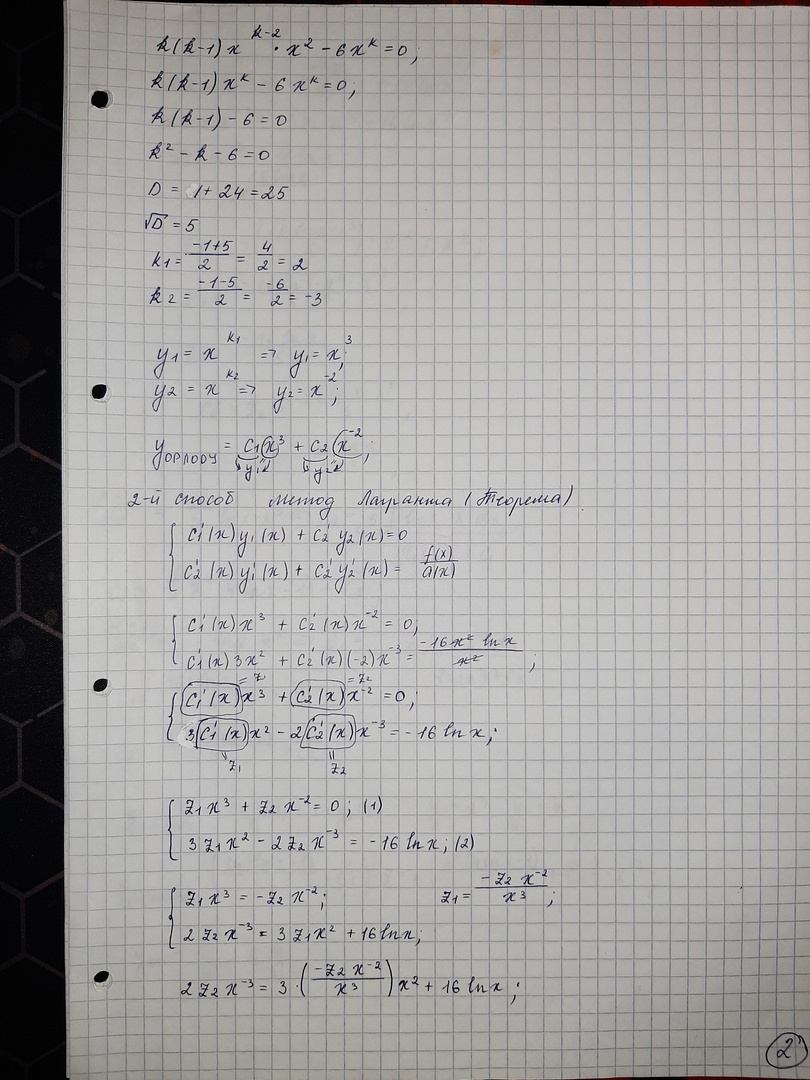 k(k-1)x^{k-2} · x² - 6x^k = 0;
k(k-1)x^k - 6x^k = 0;
k(k-1) - 6 = 0
k² - k - 6 = 0
D = 1 + 24 = 25
√D = 5
k1 = (-1+5)/2 = 4/2 = 2
k2 = (-1-5)/2 = -6/2 = -3
y1 = x^{k1} => y1 = x³;
y2 = x^{k2} => y2 = x^{-2};
yорлооч = C1(x³ + C2(x^{-2};
y1 y2
2-й способ метод Лагранжа (Теорема)
{ C1'(x)y1(x) + C2' y2(x) = 0
C2'(x)y1'(x) + C2' y2'(x) = f(x)/a(x)
{ C1'(x)x³ + C2'(x)x^{-2} = 0,
C1'(x)3x² + C2'(x)(-2)x^{-3} = -16x² ln x / x²;
= z = z2
{ C1'(x)x³ + C2'(x)x^{-2} = 0;
3C1'(x)x² - 2C2'(x)x^{-3} = -16 ln x;
= z1 = z2
{ z1x³ + z2x^{-2} = 0; (1)
3z1x² - 2z2x^{-3} = -16 ln x; (2)
{ z1x³ = -z2x^{-2}; z1 = -z2x^{-2}/x³;
2z2x^{-3} = 3z1x² + 16 ln x;
2z2x^{-3} = 3·(-z2x^{-2}/x³)x² + 16 ln x;
2